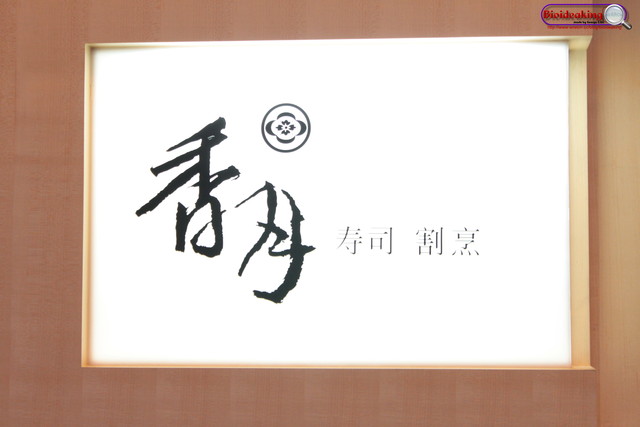 香月
寿司 割烹
Bioideaking